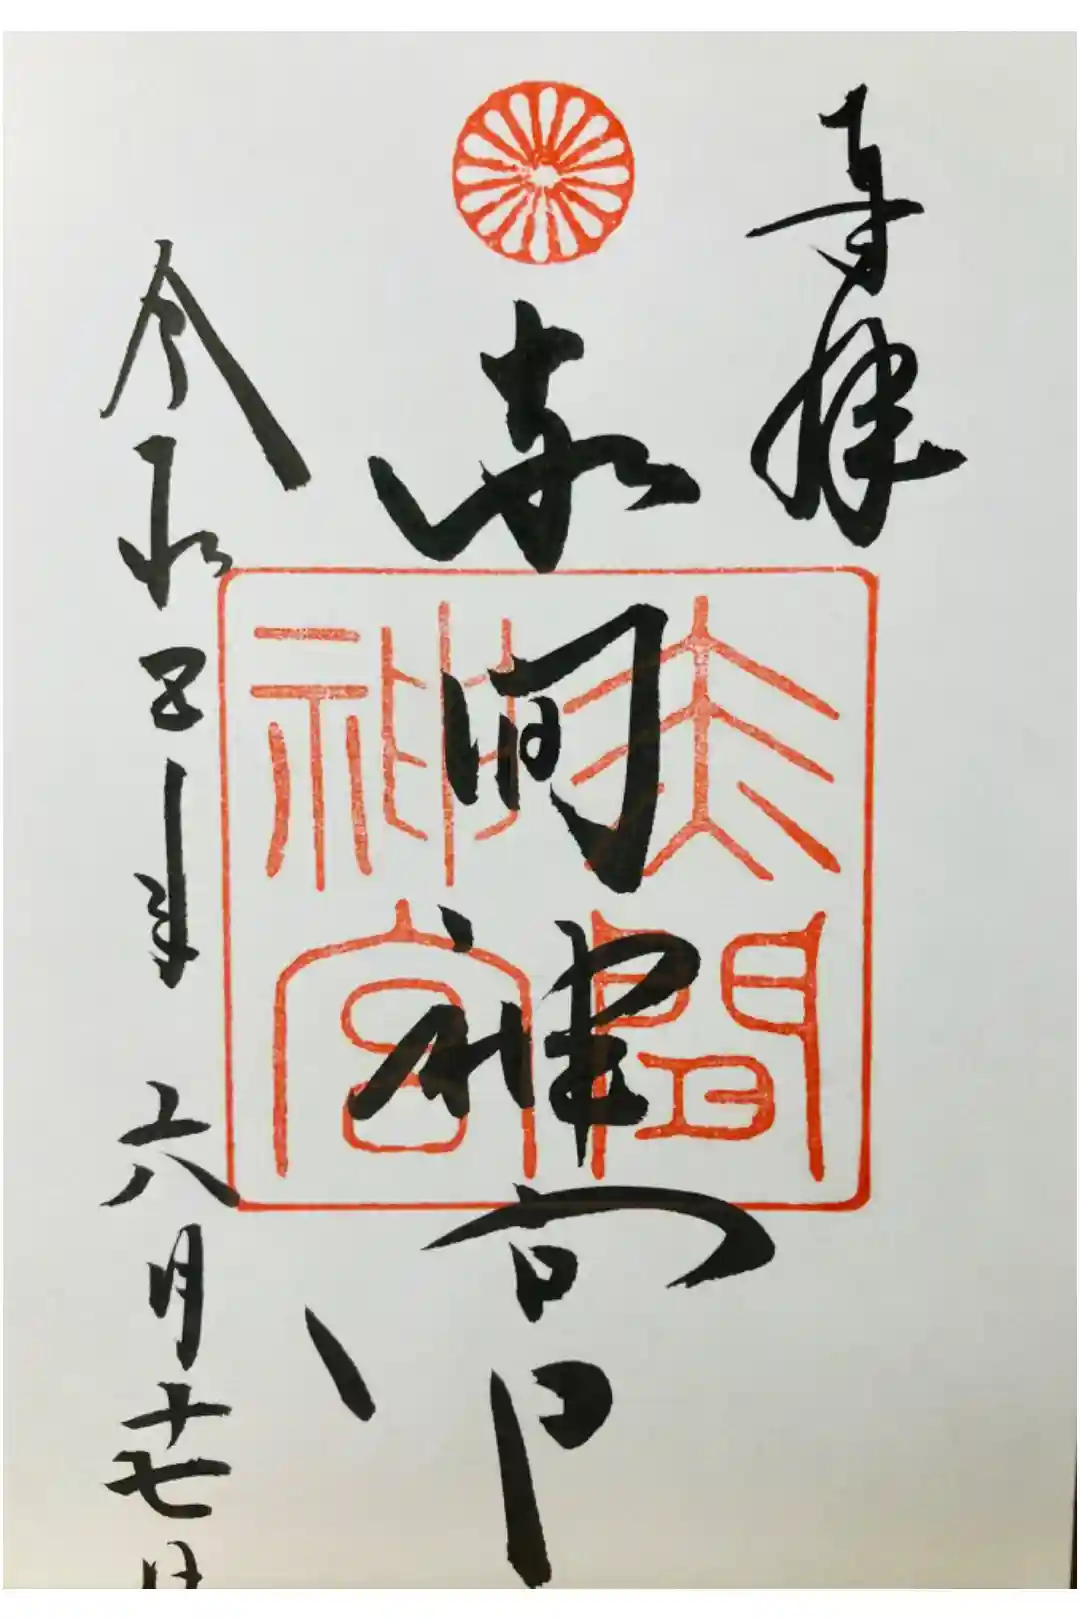 奉拝
赤間神宮
赤間
神宮
令和五年六月十七日